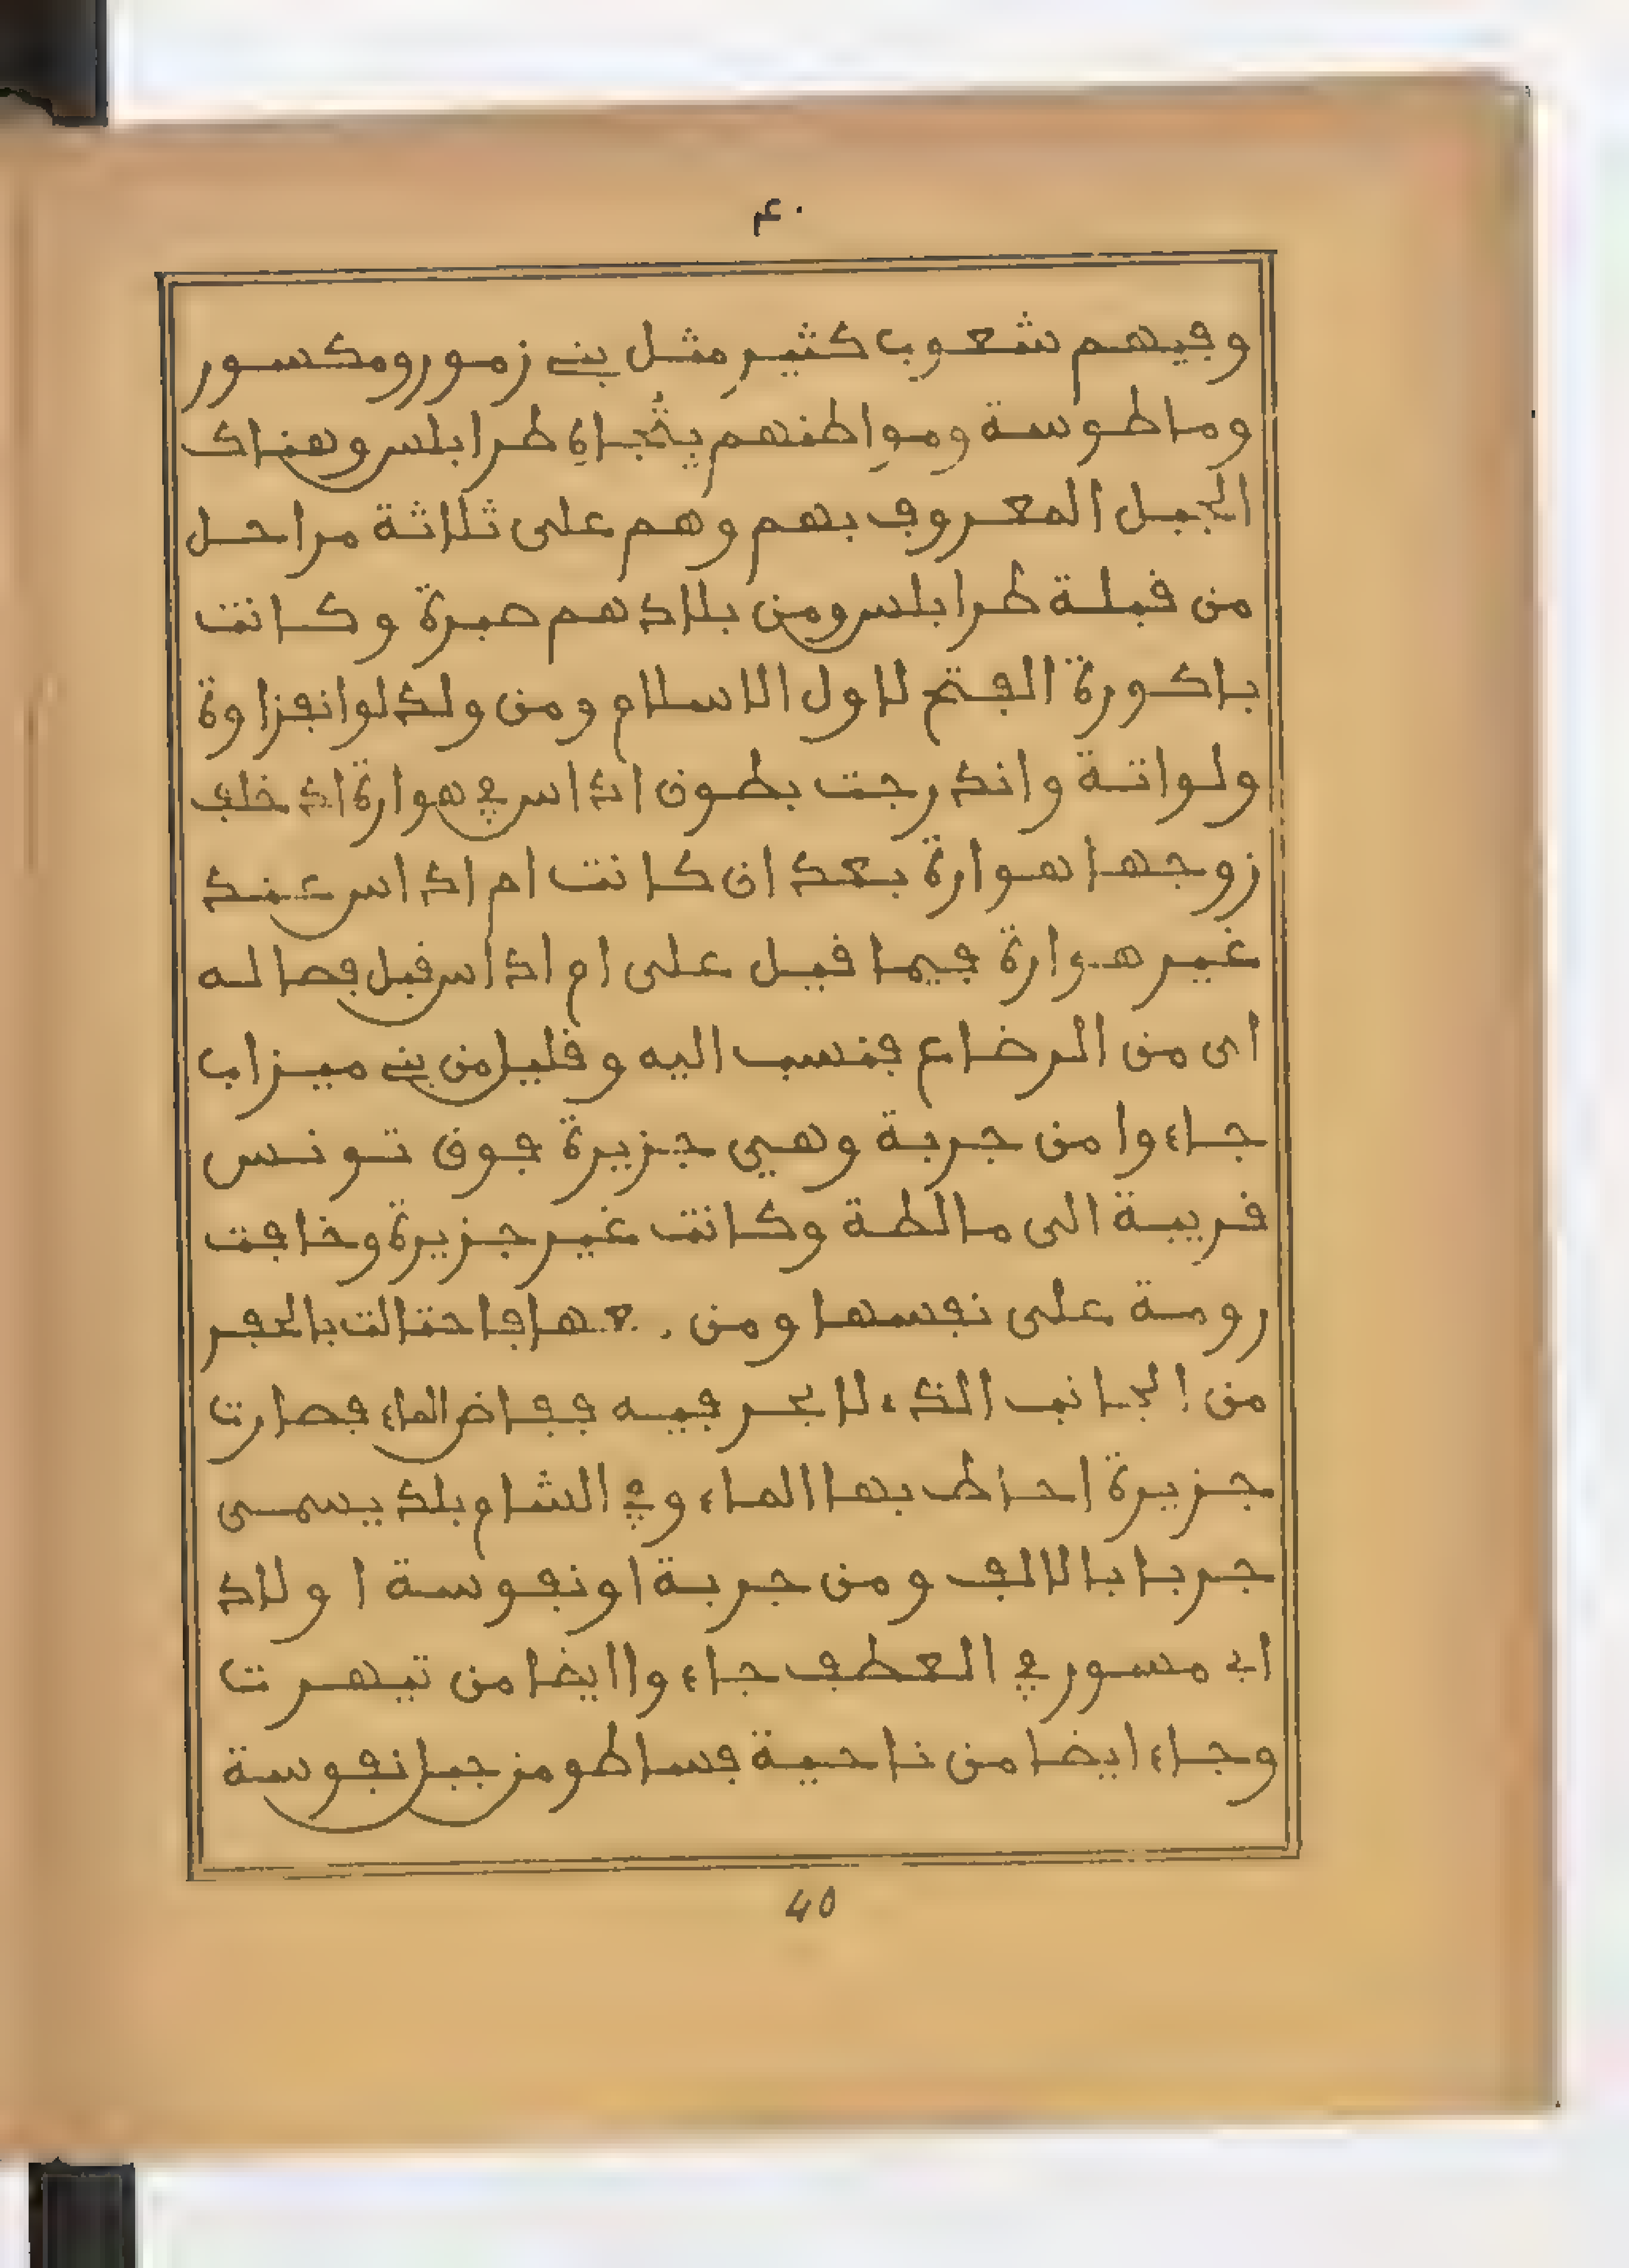 ٤٠
وفيهم شعوب كثير مثل بني زمور ومكسور
وماطوسة ومواطنهم بتُجاهِ طرابلس وهناك
الجبل المعروف بهم وهم على ثلاثة مراحل
من قبلة طرابلس ومن بلادهم صبرة وكانت
باكورة الفتح لاول الاسلام ومن ولد لوا نفزاوة
ولواتة واندرجت بطون اداس في هوارة اذ خلف
زوجها هوارة بعد ان كانت ام اداس عند
غير هوارة فيما قيل على ام اداس قبل فصاله
اى من الرضاع فنسب اليه وقليل من بني ميزاب
جاءوا من جربة وهي جزيرة فوق تونس
قريبة الى مالطة وكانت غير جزيرة وخافت
رومة على نفسها ومن معها فاحتالت بالحفر
من الجانب الذي لا بحر فيه ففاض الماء فصارت
جزيرة احاط بها الماء وفي الشام بلد يسمى
جربا بالالف ومن جربة او نفوسة اولاد
ابي مسور في العطف جاءوا ايضا من تيهرت
وجاء ايضا من ناحية فساطو من جبل نفوسة
40